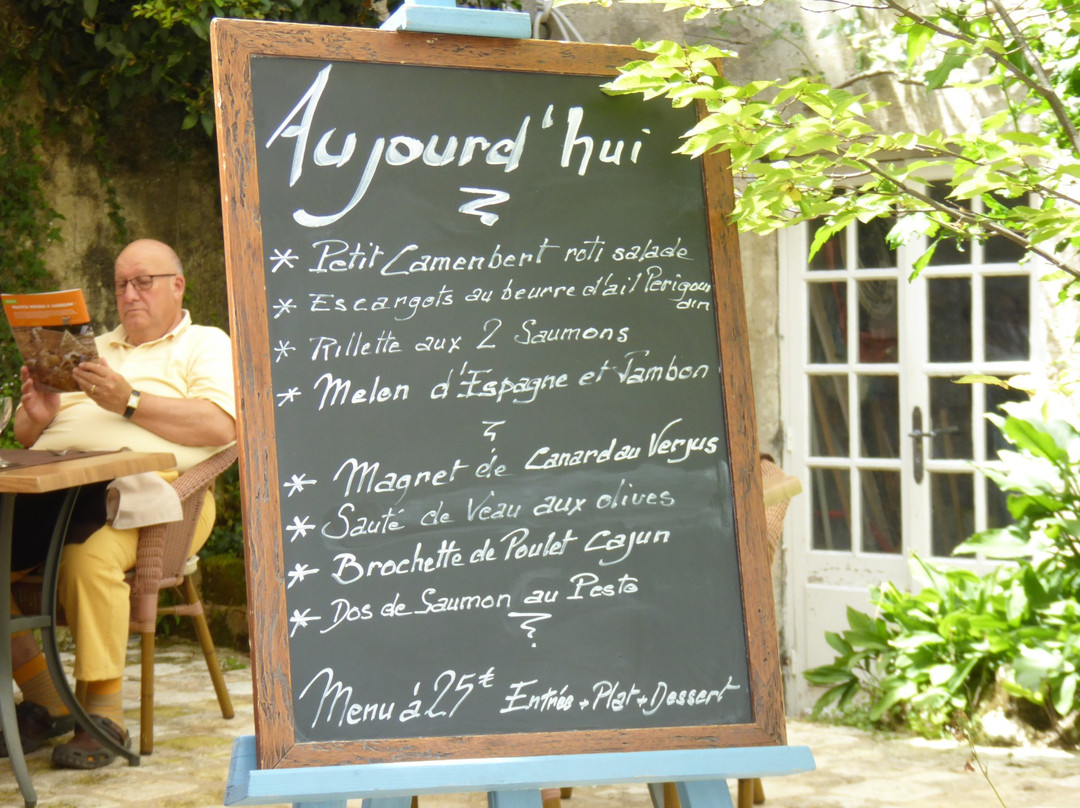 Aujourd'hui
* Petit Camenbert roti salade
* Escargots au beurre d'ail Perigour
din
* Rillette aux 2 Saumons
* Melon d'Espagne et Jambon
* Magret de Canard au Verjus
* Sauté de Veau aux olives
* Brochette de Poulet Cajun
* Dos de Saumon au Pesto
Menu à 25€ Entrée + Plat + Dessert